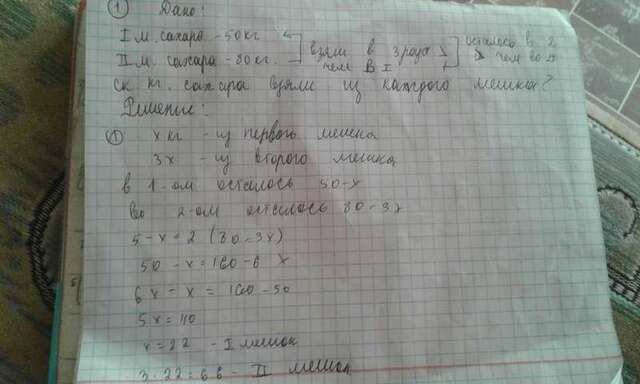 ① Дано:
I м. сахара - 50 кг.
II м. сахара - 80 кг.
взяли в 3 раза
чем в I
осталось в 2
чем во II
ск кг. сахара взяли из каждого мешка?
Решение:
① x кг - из первого мешка
3x - из второго мешка
в 1-ом осталось 50-x
во 2-ом осталось 80-3x
5-x=2(80-3x)
50-x=160-6x
6x-x=160-50
5x=110
x=22 - I мешок
3·22=66 - II мешок